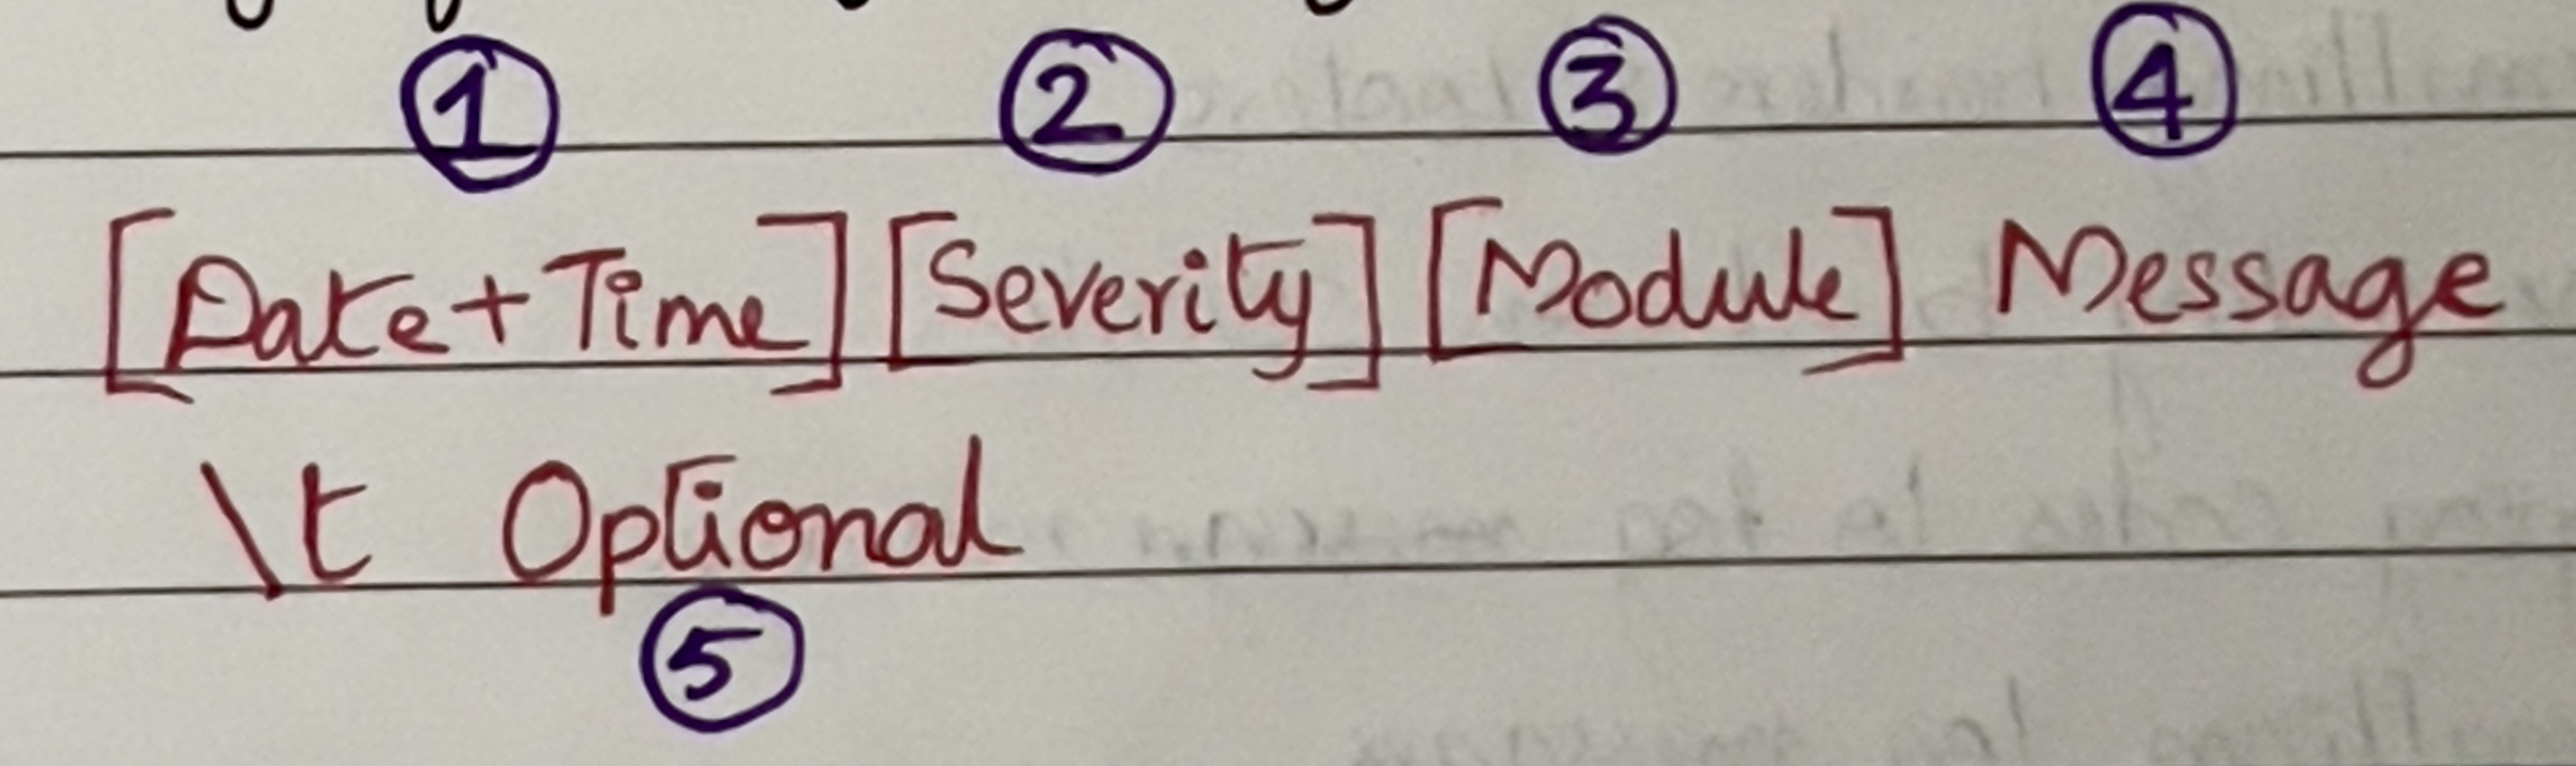 ① ② ③ ④
[Date+Time] [Severity] [Module] Message
\t Optional
⑤